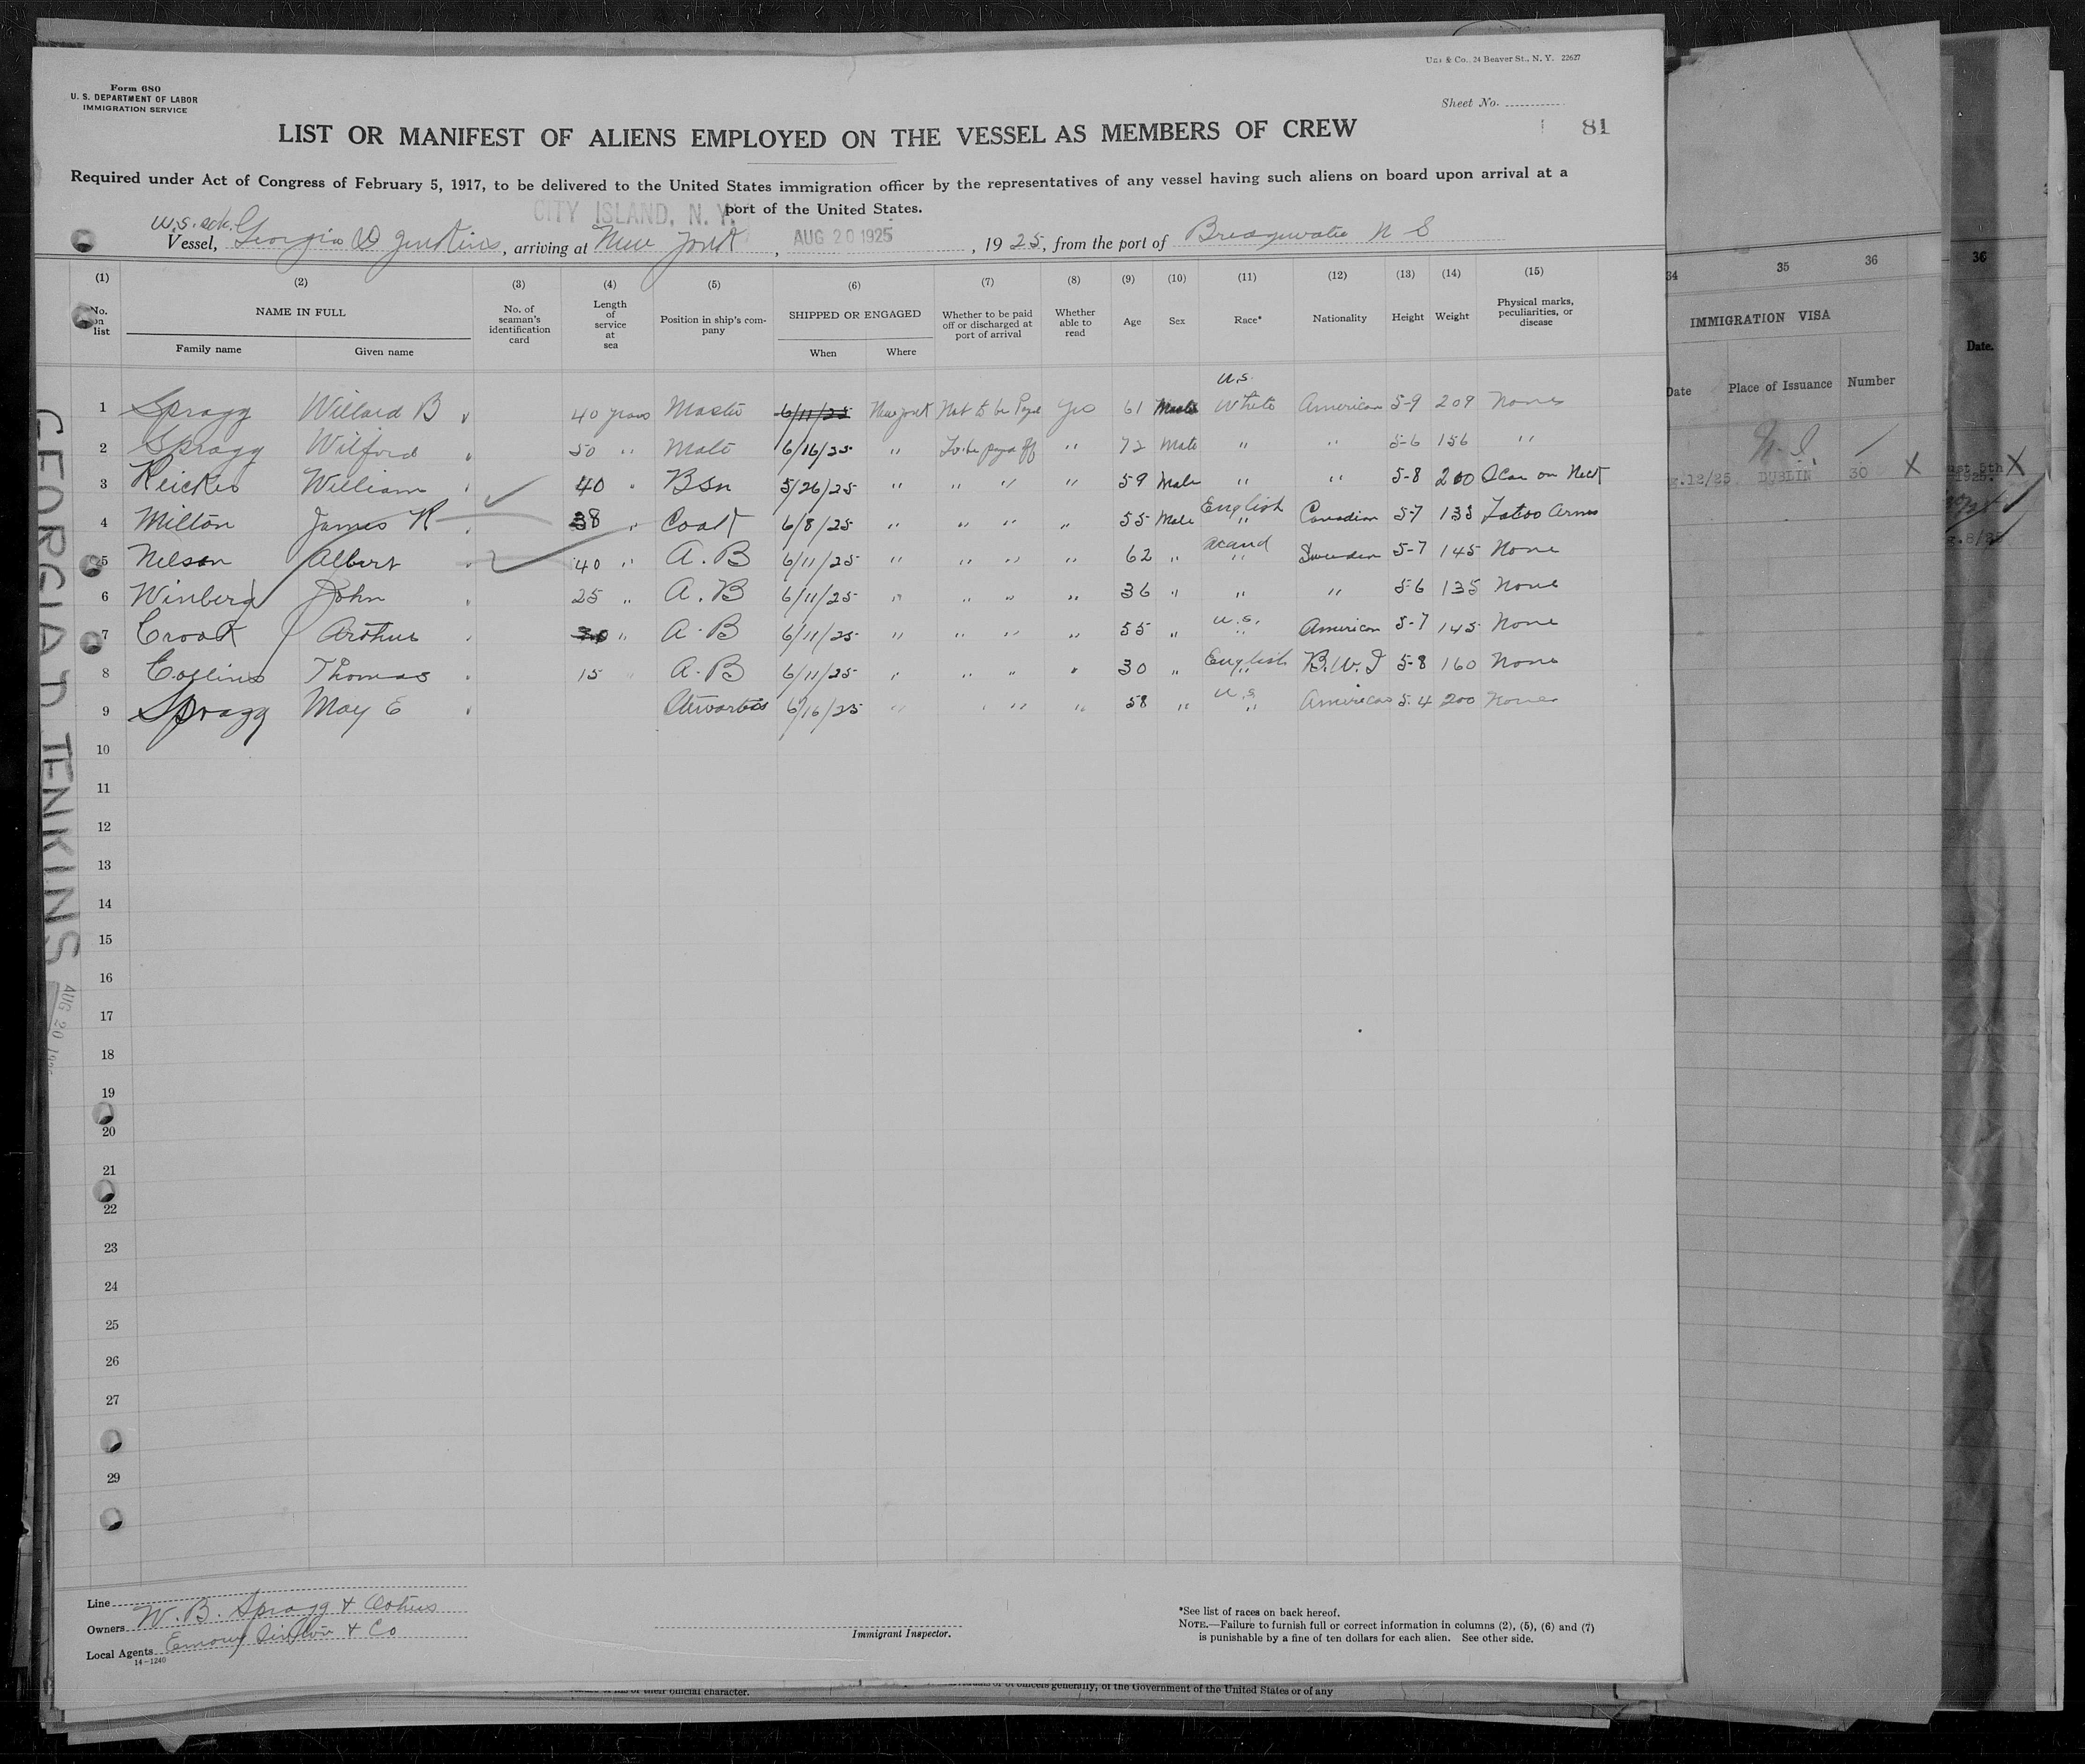 Form 680
U. S. DEPARTMENT OF LABOR
IMMIGRATION SERVICE
24 Beaver St., N. Y. 22627
Sheet No.
81
LIST OR MANIFEST OF ALIENS EMPLOYED ON THE VESSEL AS MEMBERS OF CREW
Required under Act of Congress of February 5, 1917, to be delivered to the United States immigration officer by the representatives of any vessel having such aliens on board upon arrival at a
port of the United States.
CITY ISLAND, N. Y.
Vessel, Georgia D Jenkins, arriving at New York, AUG 20 1925, 1925, from the port of Bridgewater N S
(1) (2) (3) (4) (5) (6) (7) (8) (9) (10) (11) (12) (13) (14) (15)
No. on list NAME IN FULL Family name Given name No. of seaman's identification card Length of service at sea Position in ship's company SHIPPED OR ENGAGED When Where Whether to be paid off or discharged at port of arrival Whether able to read Age Sex Race* Nationality Height Weight Physical marks, peculiarities, or disease
U.S.
1 Spragg Willard B 40 years Master 6/11/25 New York Not to be Payd yes 61 Male White American 5-9 209 None
2 Spragg Wilford 50 " Mate 6/16/25 " To be payd off " 72 Male " " 5-6 156 "
3 William 40 " Bsn 5/26/25 " " " " 59 Male " " 5-8 200 Scar on Neck
4 Milton James R 38 " Cook 6/8/25 " " " " 55 Male English " Canadian 5-7 135 Tatoo Arms
5 Nelson Albert 40 " A.B 6/11/25 " " " " 62 " Scand " Sweeden 5-7 145 None
6 Winberg John 25 " A.B 6/11/25 " " " " 36 " " " 5-6 135 None
7 Crook Arthur 30 " A.B 6/11/25 " " " " 55 " U.S. " American 5-7 145 None
8 Collins Thomas 15 " A.B 6/11/25 " " " " 30 " English " B.W.I 5-8 160 None
9 Spragg May E 6/16/25 " " " " 58 " U.S. " American 5-4 200 None
10
11
12
13
14
15
16
17
18
19
20
21
22
23
24
25
26
27
29
GEORGIA D JENKINS AUG 20
Line
Owners W. B. Spragg & Others
Local Agents & Co
14-1240
Immigrant Inspector.
*See list of races on back hereof.
NOTE.—Failure to furnish full or correct information in columns (2), (5), (6) and (7)
is punishable by a fine of ten dollars for each alien. See other side.
34 35 36
IMMIGRATION VISA
Date Place of Issuance Number
12/25 DUBLIN 30 X
36
Date.
5th X
1925.
their official character.
officers generally, of the Government of the United States or of any